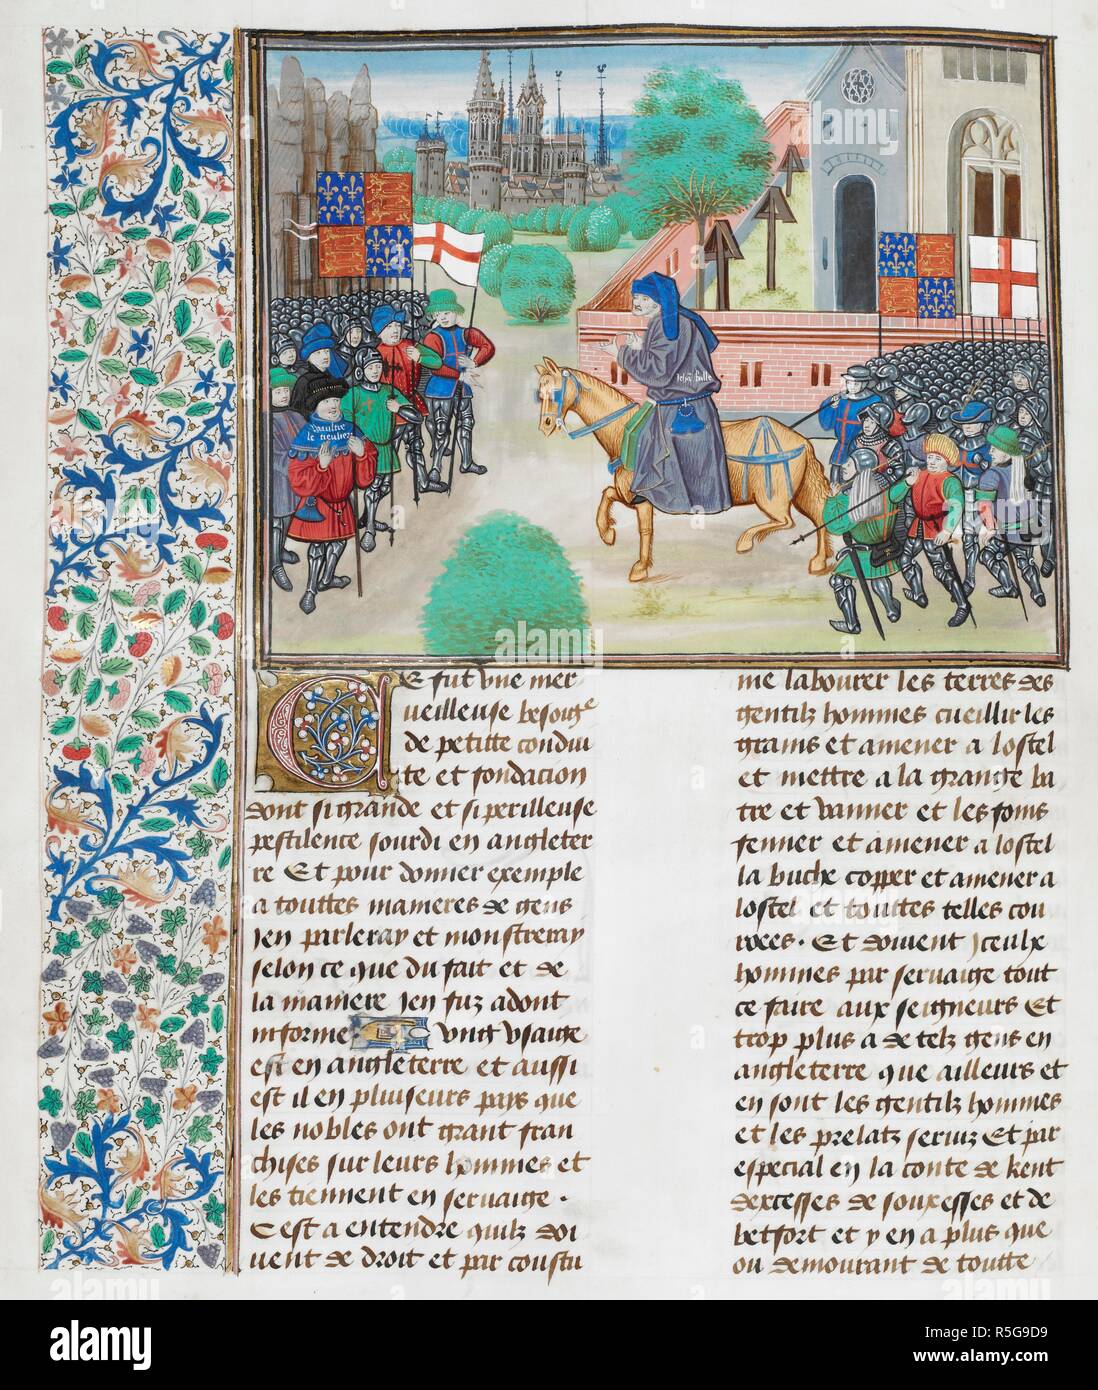 Jehã balle
Waultre
le tieulier
CE fut une mer
veilleuse besoigͤ
de petitte condui
te et fondacion
dont si grande et si perilleuse
pestilence sourdi en angleter
re Et pour donner exemple
a touttes manieres de gens
Jen parleray et monstreray
selon ce que du fait et de
la maniere Jen fuz adont
informe ung usaige
est en angleterre et aussi
est il en pluiseurs pays que
les nobles ont grant fran
chises sur leurs hommes et
les tiennent en servaige .
C est a entendre quilz doi
vent de droit et par coustu
me labourer les terres des
gentilz hommes cueillir les
grains et amener a lostel
et mettre a la grange ba
tre et vanner et les foins
fenner et amener a lostel
la buche copper et amener a
lostel et touttes telles cou
rvees . Et doivent Jceulx
hommes par servaige tout
ce faire aux seigneurs Et
trop plus a de telz gens en
angleterre que ailleurs et
en sont les gentilz hommes
et les prelatz serviz Et par
especial en la conte de kent
dexcesses de souxesses et de
betfort et y en a plus que
ou demourant de toutte
alamy
Image ID: R5G9D9
www.alamy.com